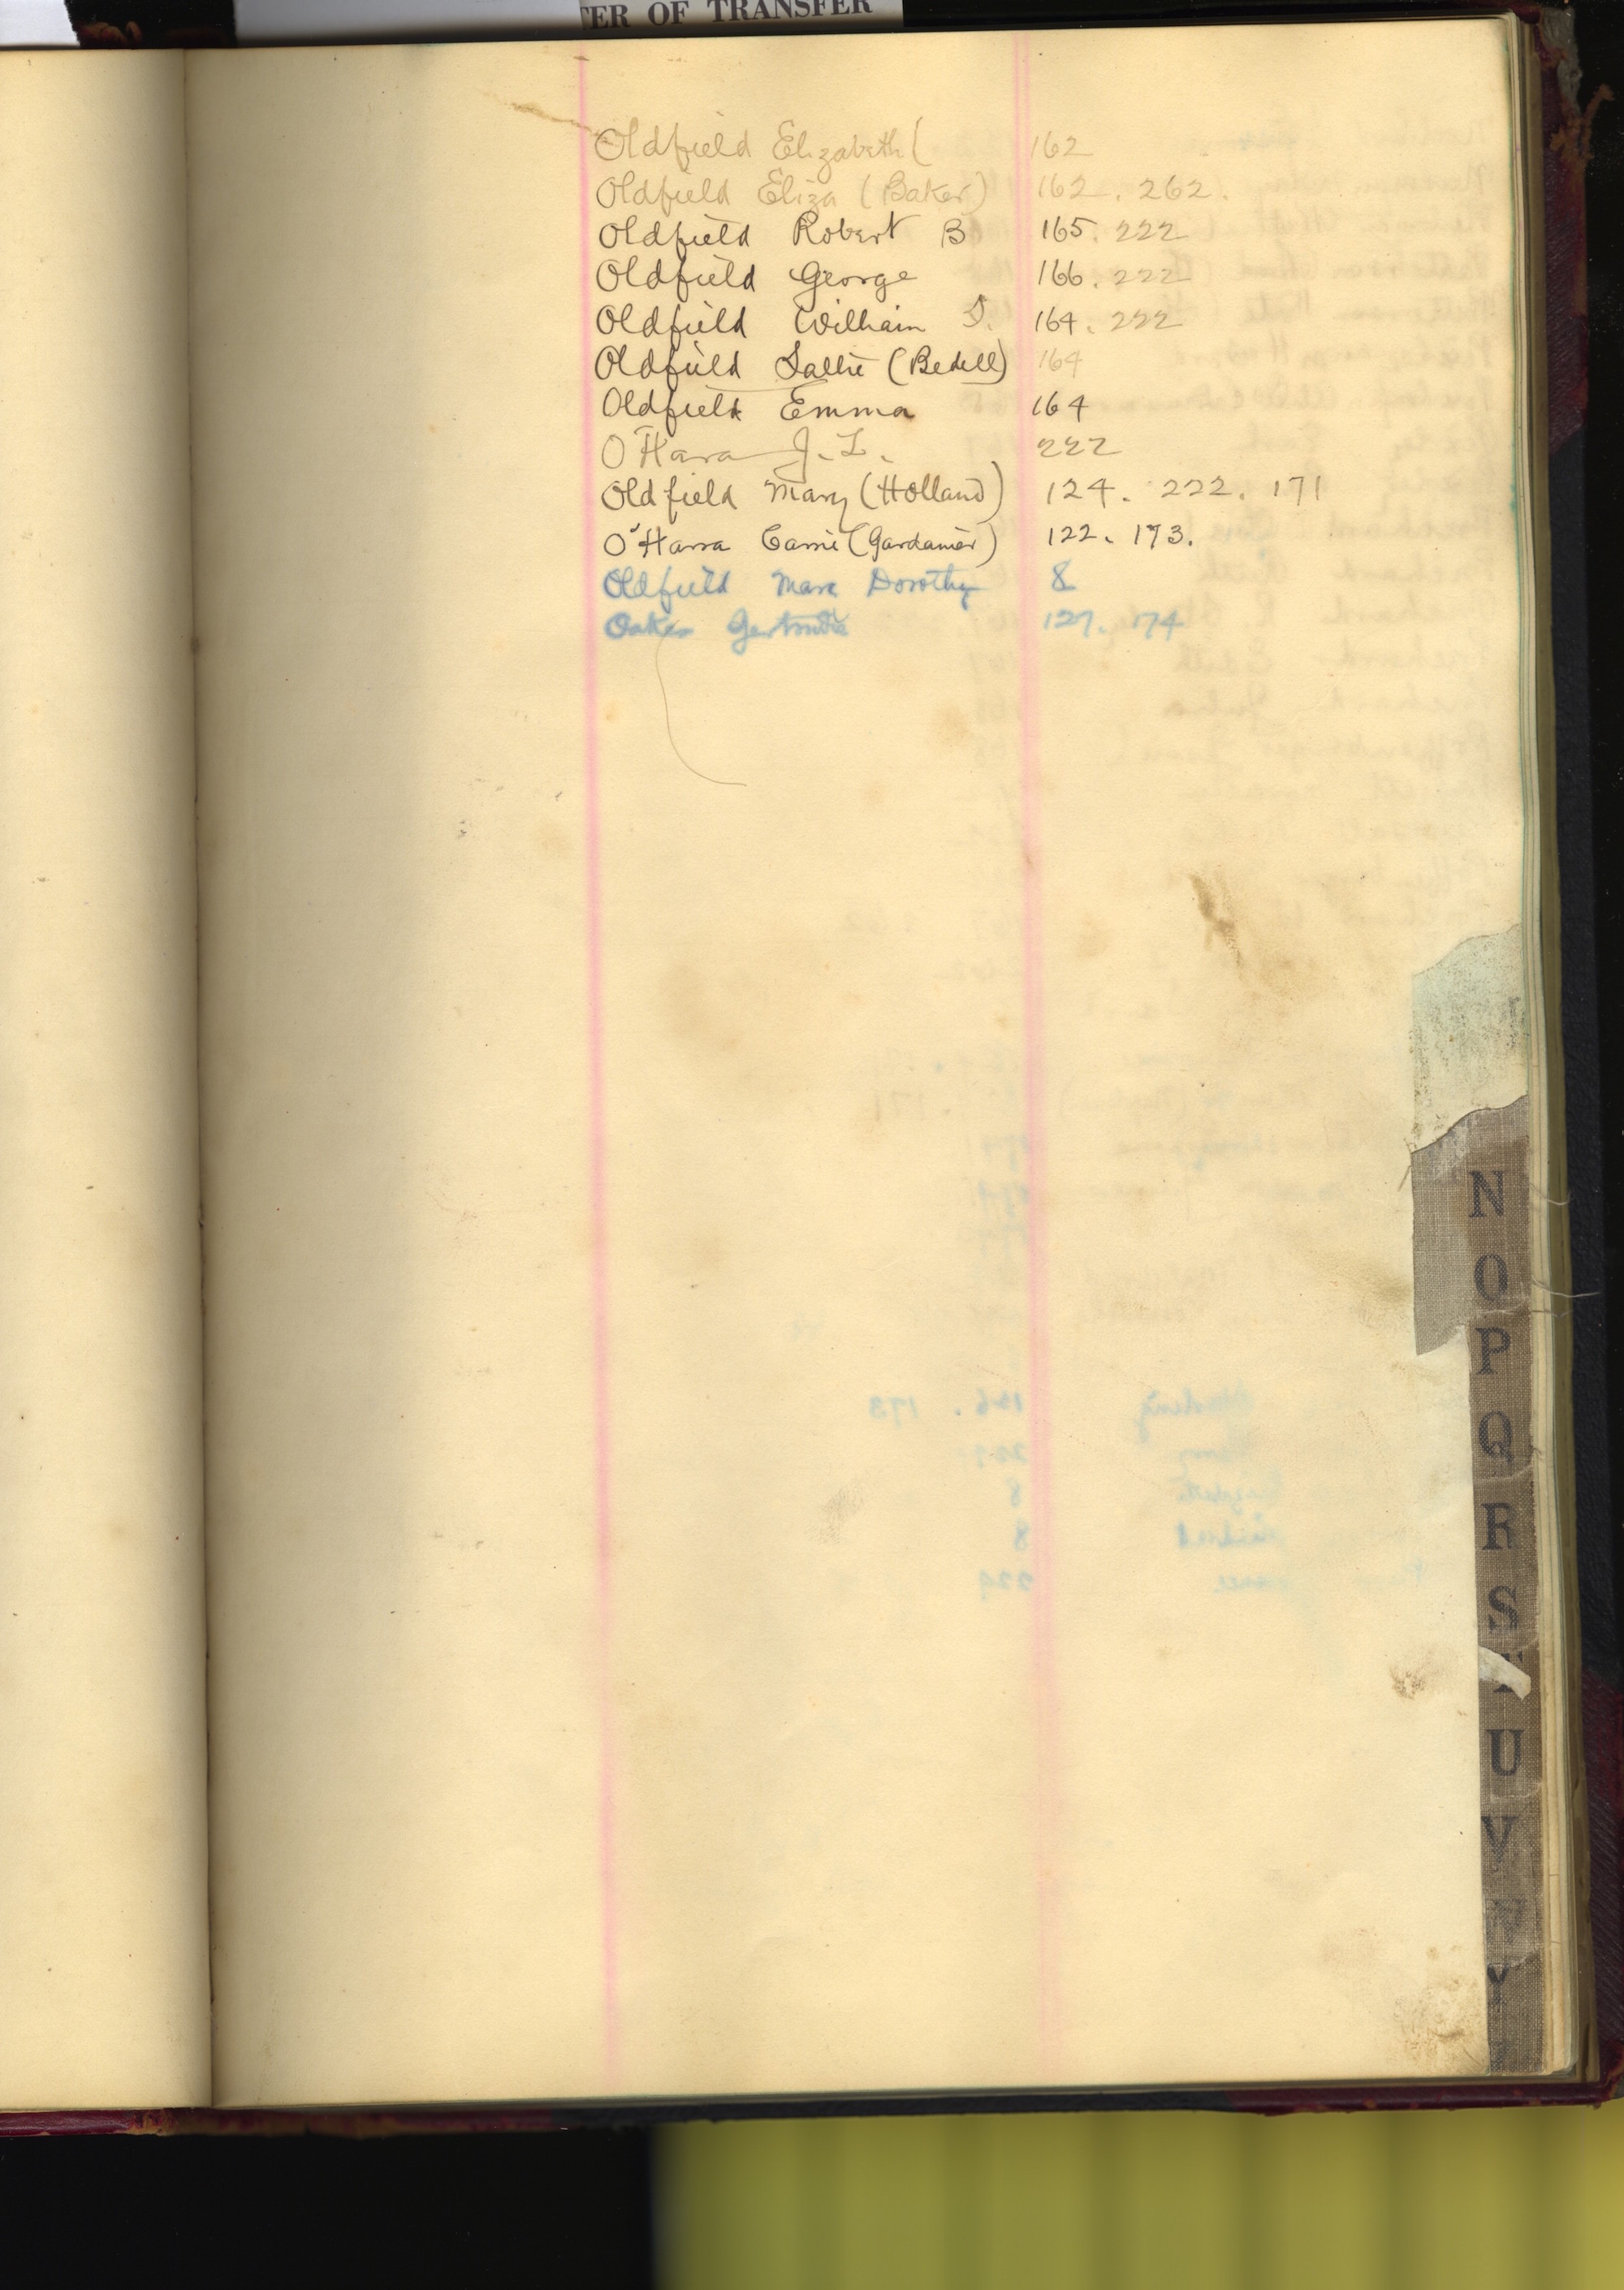 TER OF TRANSFER
Oldfield Elizabeth ( 162
Oldfield Eliza (Baker) 162. 262.
Oldfield Robert B 165. 222
Oldfield George 166. 222
Oldfield William S. 164. 222
Oldfield Sallie (Bedell) 164
Oldfield Emma 164
O'Hara J. L. 222
Oldfield Mary (Holland) 124. 222. 171
O'Harra Carrie (Gardanier) 122. 173.
Oldfield Mark Dorothy 8
Oakes Gertrude 127. 174
N
O
P
Q
R
S
T
U
V
W
Y